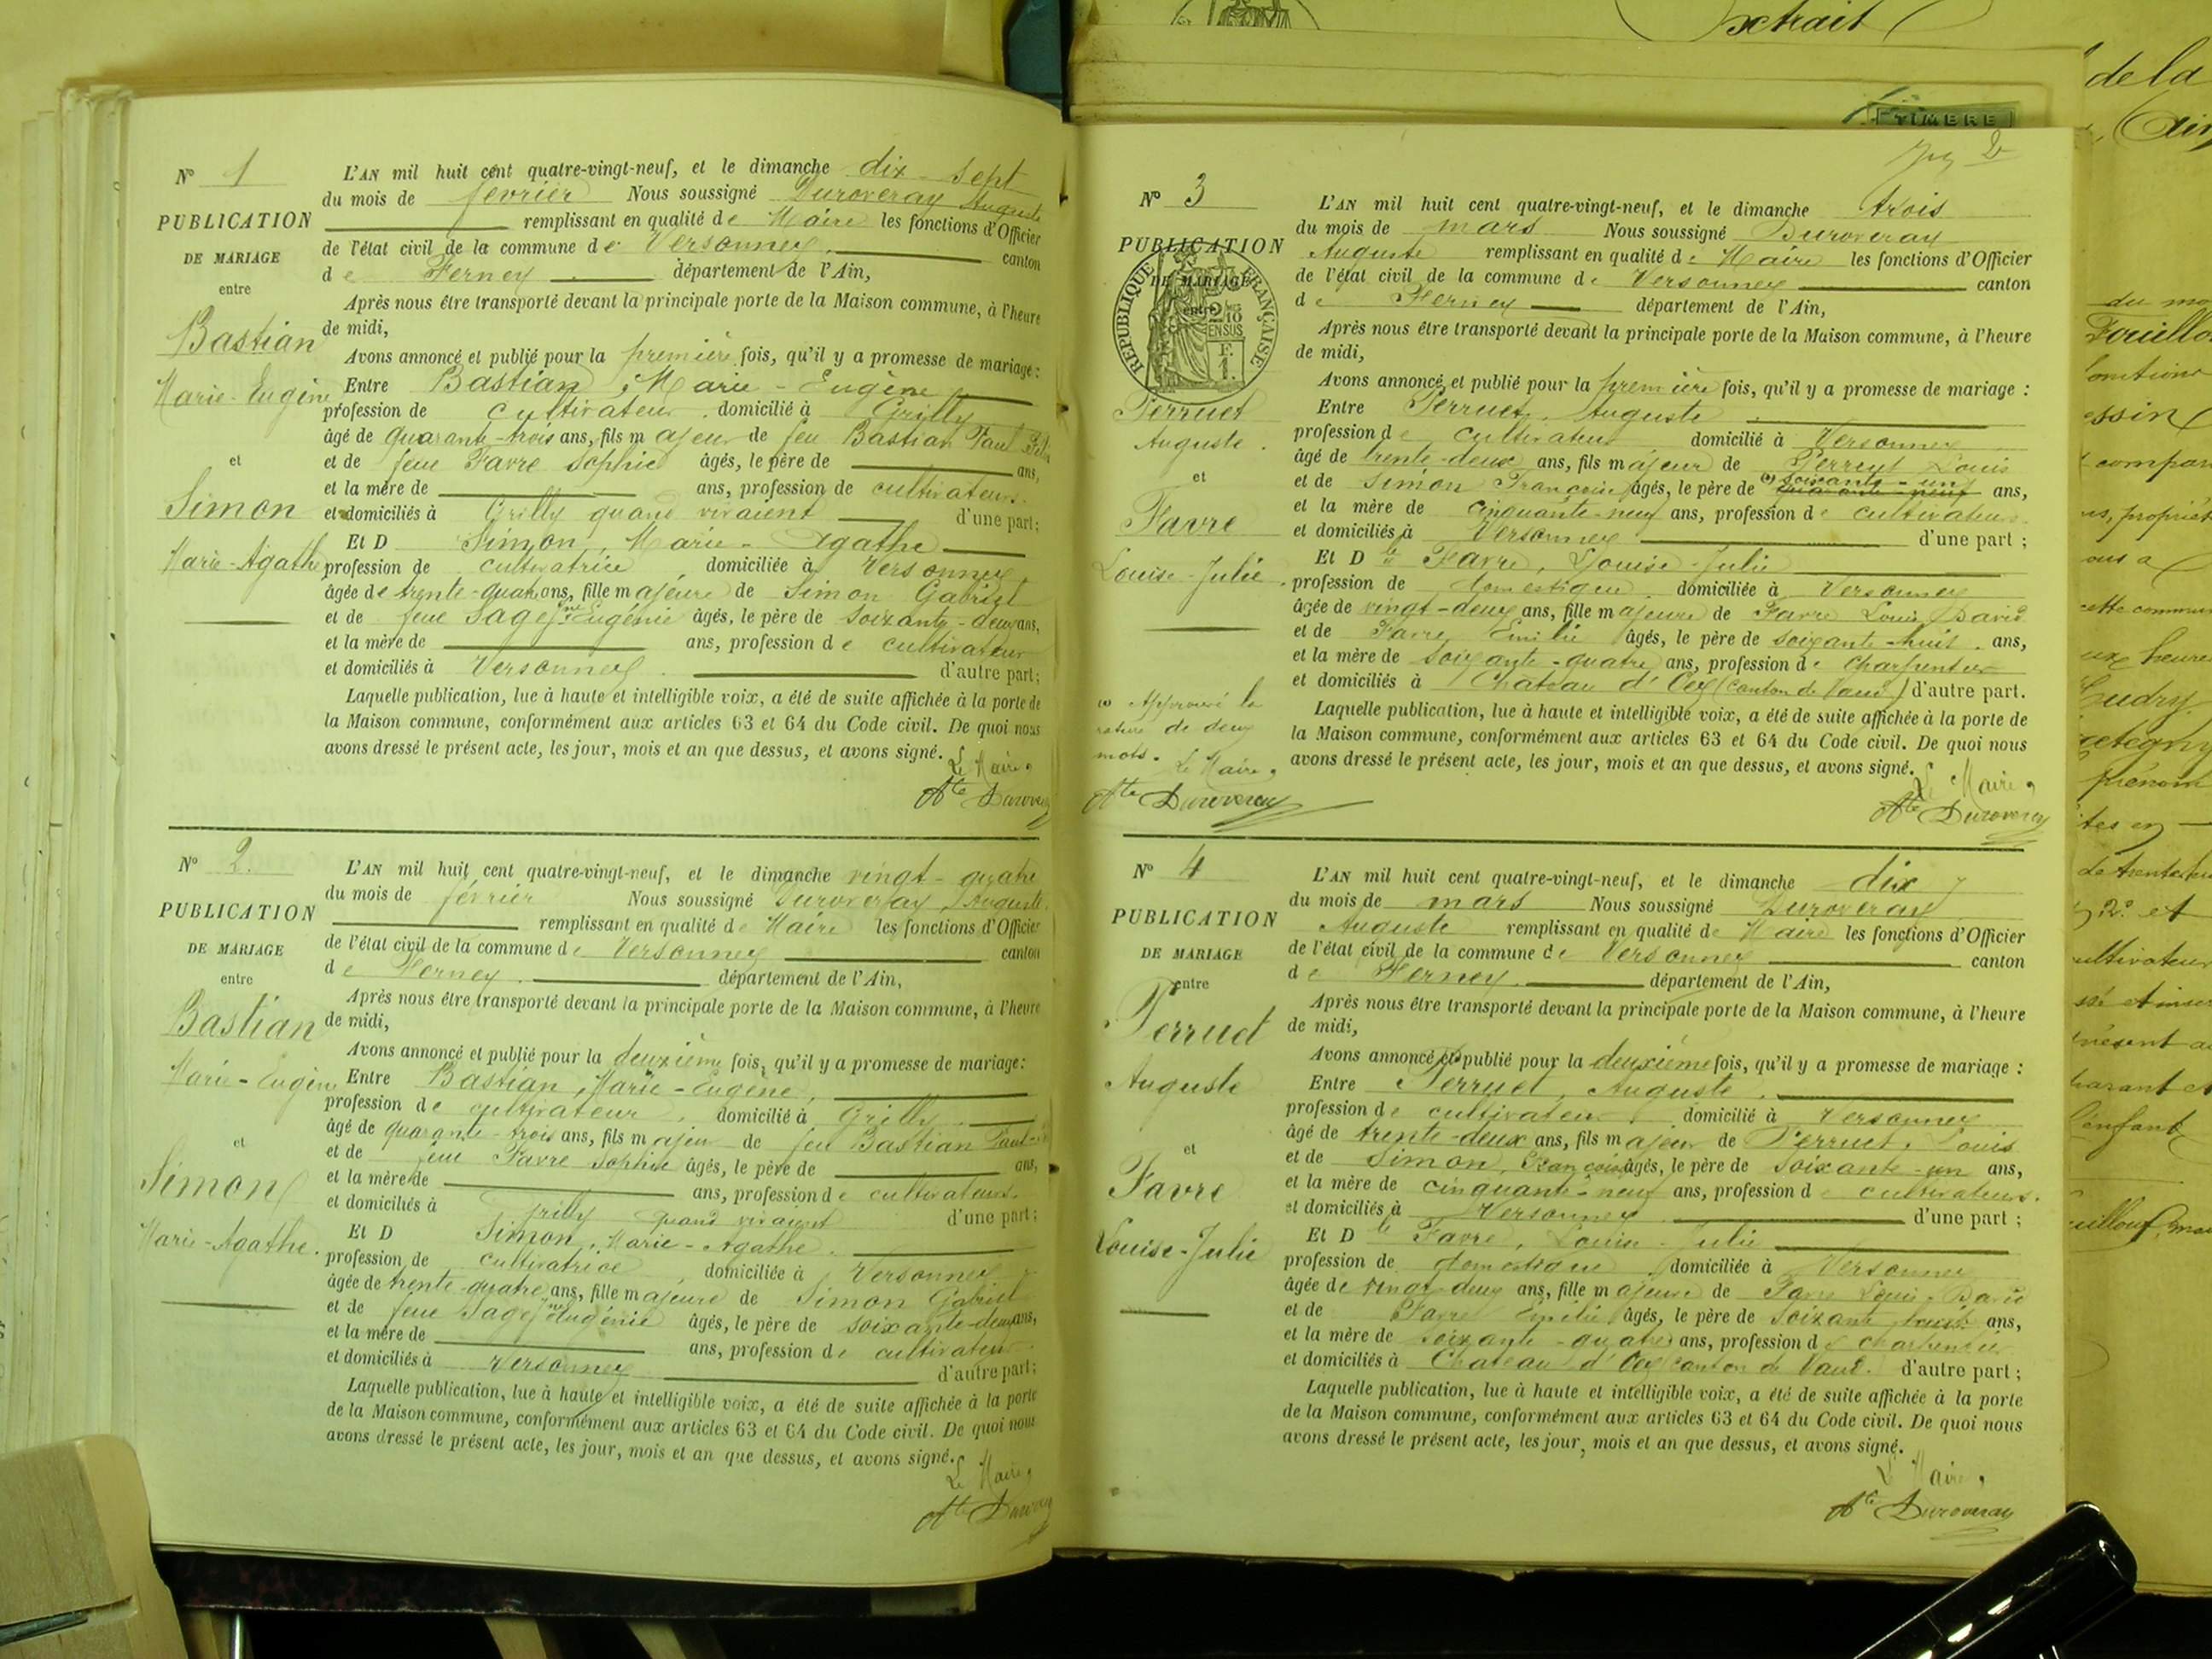 N° 1
PUBLICATION
DE MARIAGE
entre
Bastian
Marie-Eugène
et
Simon
Marie-Agathe
L'AN mil huit cent quatre-vingt-neuf, et le dimanche dix-sept
du mois de février Nous soussigné Duroveray Auguste
remplissant en qualité de Maire les fonctions d'Officier
de l'état civil de la commune de Versonnex canton
de Ferney département de l'Ain,
Après nous être transporté devant la principale porte de la Maison commune, à l'heure
de midi,
Avons annoncé et publié pour la première fois, qu'il y a promesse de mariage :
Entre Bastian, Marie-Eugène
profession de cultivateur, domicilié à Grilly
âgé de quarante-trois ans, fils majeur de feu Bastian Paul
et de feue Favre Sophie âgés, le père de ans,
et la mère de ans, profession de cultivateurs
et domiciliés à Grilly quand vivaient d'une part ;
Et D Simon, Marie-Agathe
profession de cultivatrice domiciliée à Versonnex
âgée de trente-quatre ans, fille majeure de Simon Gabriel
et de feue Sage Eugénie âgés, le père de soixante-deux ans,
et la mère de ans, profession de cultivateur
et domiciliés à Versonnex d'autre part ;
Laquelle publication, lue à haute et intelligible voix, a été de suite affichée à la porte de
la Maison commune, conformément aux articles 63 et 64 du Code civil. De quoi nous
avons dressé le présent acte, les jour, mois et an que dessus, et avons signé.
Le Maire,
Ate Duroveray
N° 2.
PUBLICATION
DE MARIAGE
entre
Bastian
Marie-Eugène
et
Simon
Marie-Agathe.
L'AN mil huit cent quatre-vingt-neuf, et le dimanche vingt-quatre
du mois de février Nous soussigné Duroveray, Auguste
remplissant en qualité de Maire les fonctions d'Officier
de l'état civil de la commune de Versonnex canton
de Ferney. département de l'Ain,
Après nous être transporté devant la principale porte de la Maison commune, à l'heure
de midi,
Avons annoncé et publié pour la deuxième fois, qu'il y a promesse de mariage :
Entre Bastian, Marie-Eugène,
profession de cultivateur, domicilié à Grilly
âgé de quarante-trois ans, fils majeur de feu Bastian Paul
et de feue Favre Sophie âgés, le père de ans,
et la mère de ans, profession de cultivateurs.
et domiciliés à Grilly quand vivaient d'une part ;
Et D Simon, Marie-Agathe.
profession de cultivatrice, domiciliée à Versonnex
âgée de trente-quatre ans, fille majeure de Simon Gabriel
et de feue Sage Eugénie âgés, le père de soixante-deux ans,
et la mère de ans, profession de cultivateur
et domiciliés à Versonnex d'autre part ;
Laquelle publication, lue à haute et intelligible voix, a été de suite affichée à la porte
de la Maison commune, conformément aux articles 63 et 64 du Code civil. De quoi nous
avons dressé le présent acte, les jour, mois et an que dessus, et avons signé.
Le Maire,
Ate Duroveray
xtrait
TIMBRE
2
N° 3
PUBLICATION
DE MARIAGE
entre
RÉPUBLIQUE FRANÇAISE
Perruet
Auguste.
et
Favre
Louise-Julie.
(1) Approuvé la
rature de deux
mots. Le Maire,
Ate Duroveray
L'AN mil huit cent quatre-vingt-neuf, et le dimanche trois
du mois de mars Nous soussigné Duroveray
Auguste remplissant en qualité de Maire les fonctions d'Officier
de l'état civil de la commune de Versonnex canton
de Ferney département de l'Ain,
Après nous être transporté devant la principale porte de la Maison commune, à l'heure
de midi,
Avons annoncé et publié pour la première fois, qu'il y a promesse de mariage :
Entre Perruet, Auguste
profession de cultivateur domicilié à Versonnex
âgé de trente-deux ans, fils majeur de Perruet Louis
et de Simon Françoise âgés, le père de (1) soixante-un quarante-neuf ans,
et la mère de cinquante-neuf ans, profession de cultivateurs
et domiciliés à Versonnex d'une part ;
Et Dlle Favre, Louise-Julie
profession de domestique, domiciliée à Versonnex
âgée de vingt-deux ans, fille majeure de Favre Louis David
et de Favre Emilie âgés, le père de soixante-huit ans,
et la mère de soixante-quatre ans, profession de charpentier
et domiciliés à Château d'Oex (canton de Vaud) d'autre part.
Laquelle publication, lue à haute et intelligible voix, a été de suite affichée à la porte de
la Maison commune, conformément aux articles 63 et 64 du Code civil. De quoi nous
avons dressé le présent acte, les jour, mois et an que dessus, et avons signé.
Le Maire,
Ate Duroveray
N° 4
PUBLICATION
DE MARIAGE
entre
Perruet
Auguste
et
Favre
Louise-Julie
L'AN mil huit cent quatre-vingt-neuf, et le dimanche dix
du mois de mars Nous soussigné Duroveray
Auguste remplissant en qualité de Maire les fonctions d'Officier
de l'état civil de la commune de Versonnex canton
de Ferney. département de l'Ain,
Après nous être transporté devant la principale porte de la Maison commune, à l'heure
de midi,
Avons annoncé et publié pour la deuxième fois, qu'il y a promesse de mariage :
Entre Perruet, Auguste.
profession de cultivateur domicilié à Versonnex
âgé de trente-deux ans, fils majeur de Perruet, Louis
et de Simon, Françoise âgés, le père de soixante-un ans,
et la mère de cinquante-neuf ans, profession de cultivateurs.
et domiciliés à Versonnex d'une part ;
Et Dlle Favre, Louise-Julie
profession de domestique domiciliée à Versonnex
âgée de vingt-deux ans, fille majeure de Favre Louis-David
et de Favre Emilie âgés, le père de soixante-huit ans,
et la mère de soixante-quatre ans, profession de charpentier
et domiciliés à Château d'Oex canton de Vaud. d'autre part ;
Laquelle publication, lue à haute et intelligible voix, a été de suite affichée à la porte
de la Maison commune, conformément aux articles 63 et 64 du Code civil. De quoi nous
avons dressé le présent acte, les jour, mois et an que dessus, et avons signé.
Le Maire,
Ate Duroveray
de la
du mo
compar
propriét
cette commun
heure
prénom
et
ultivateur
l'enfant